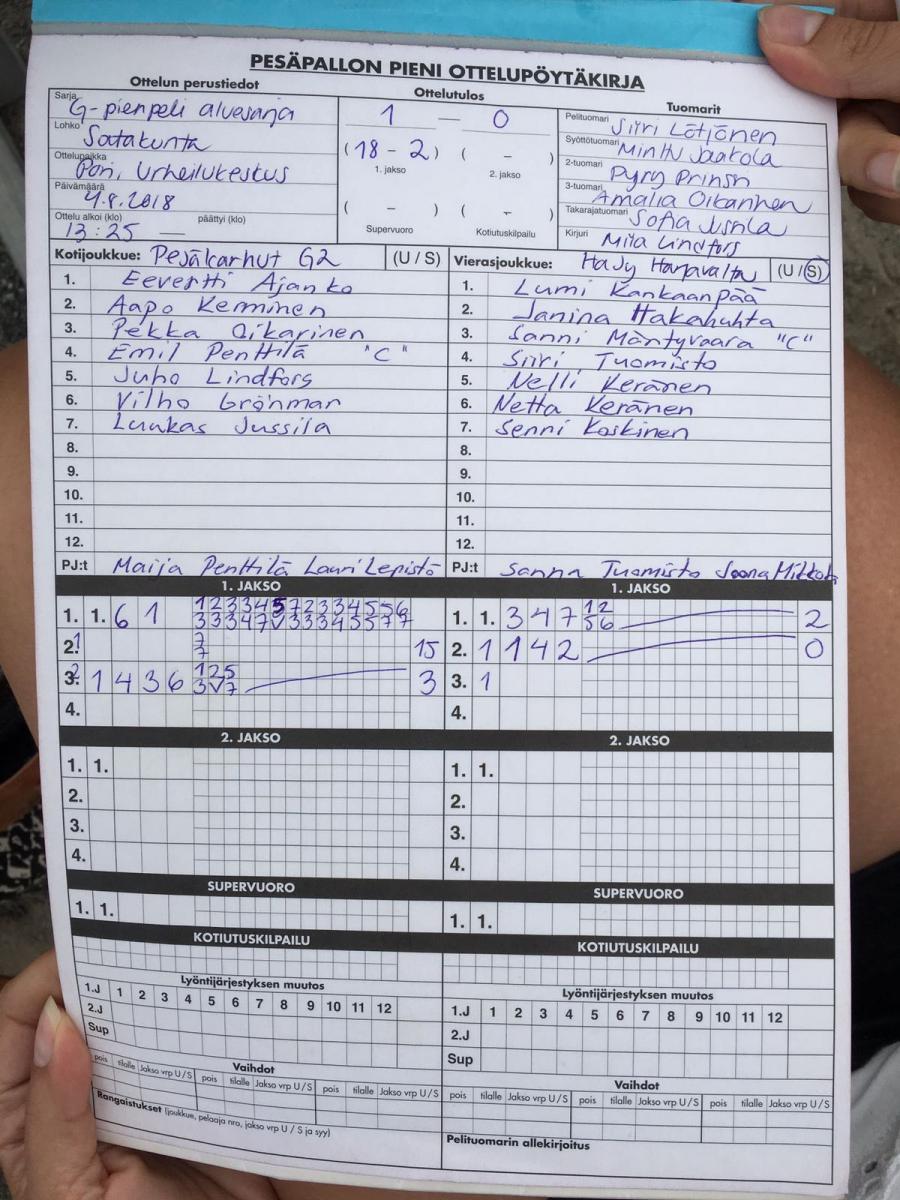 PESÄPALLON PIENI OTTELUPÖYTÄKIRJA
Ottelun perustiedot
Sarja G-pienpeli aluesarja
Lohko Satakunta
Ottelupaikka Pori, Urheilukeskus
Päivämäärä 4.8.2018
Ottelu alkoi (klo) 13:25 päättyi (klo) —
Ottelutulos
1 — 0
(18 - 2) ( - )
1. jakso 2. jakso
( - ) ( - )
Supervuoro Kotiutuskilpailu
Tuomarit
Pelituomari Siiri Lötjönen
Syöttötuomari Minttu Jaakola
2-tuomari Pyry Prinssi
3-tuomari Amalia Oikarinen
Takarajatuomari Sofia Jussila
Kirjuri Miia Lindfors
Kotijoukkue: Pesäkarhut G2 (U / S)
1. Eevertti Ajanko
2. Aapo Kerminen
3. Pekka Oikarinen
4. Emil Penttilä "C"
5. Juho Lindfors
6. Vilho Grönman
7. Luukas Jussila
8.
9.
10.
11.
12.
PJ:t Maija Penttilä Lauri Lepistö
Vierasjoukkue: HaJy Harjavalta (U / S)
1. Lumi Kankaanpää
2. Janina Hakahuhta
3. Sanni Mäntyvaara "C"
4. Siiri Tuomisto
5. Nelli Keränen
6. Netta Keränen
7. Senni Koskinen
8.
9.
10.
11.
12.
PJ:t Sanna Tuomisto Joona Mikkola
1. JAKSO
1. 1. 6 1
1 2 3 3 4 5 7 2 3 3 4 5 5 6
3 3 3 4 7 V 3 3 3 4 5 5 7 7
2. 1 7 15
7
3. 2 1 4 3 6 1 2 5 3
3 V 7
4.
2. JAKSO
1. 1.
2.
3.
4.
SUPERVUORO
1. 1.
KOTIUTUSKILPAILU
Lyöntijärjestyksen muutos
1.J 1 2 3 4 5 6 7 8 9 10 11 12
2.J
Sup
Vaihdot
pois tilalle Jakso vrp U / S pois tilalle Jakso vrp U / S pois tilalle Jakso vrp U / S
Rangaistukset (joukkue, pelaaja nro, jakso vrp U / S ja syy)
1. JAKSO
1. 1. 3 4 7 1 2 2
5 6
2. 1 1 4 2 0
3. 1
4.
2. JAKSO
1. 1.
2.
3.
4.
SUPERVUORO
1. 1.
KOTIUTUSKILPAILU
Lyöntijärjestyksen muutos
1.J 1 2 3 4 5 6 7 8 9 10 11 12
2.J
Sup
Vaihdot
pois tilalle Jakso vrp U / S pois tilalle Jakso vrp U / S pois tilalle Jakso vrp U / S
Pelituomarin allekirjoitus